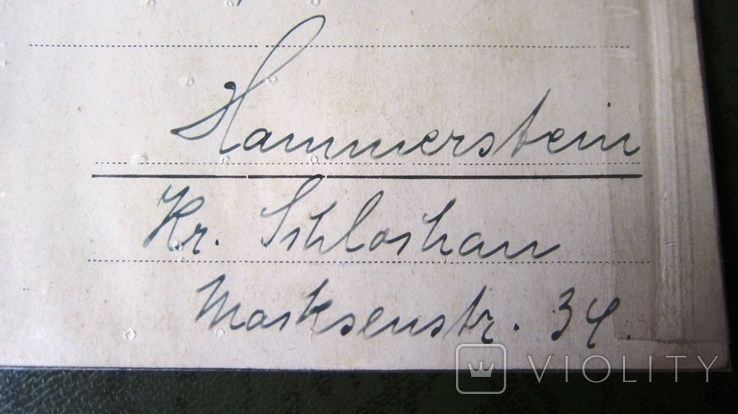 Hammerstein
Kr. Schloshau
Marksenstr. 34.
VIOLITY